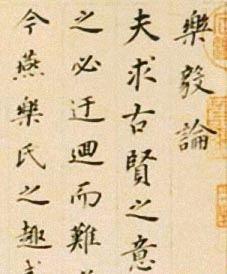 樂毅論
夫求古賢之意
之必迂迴而難
今燕樂氏之趣